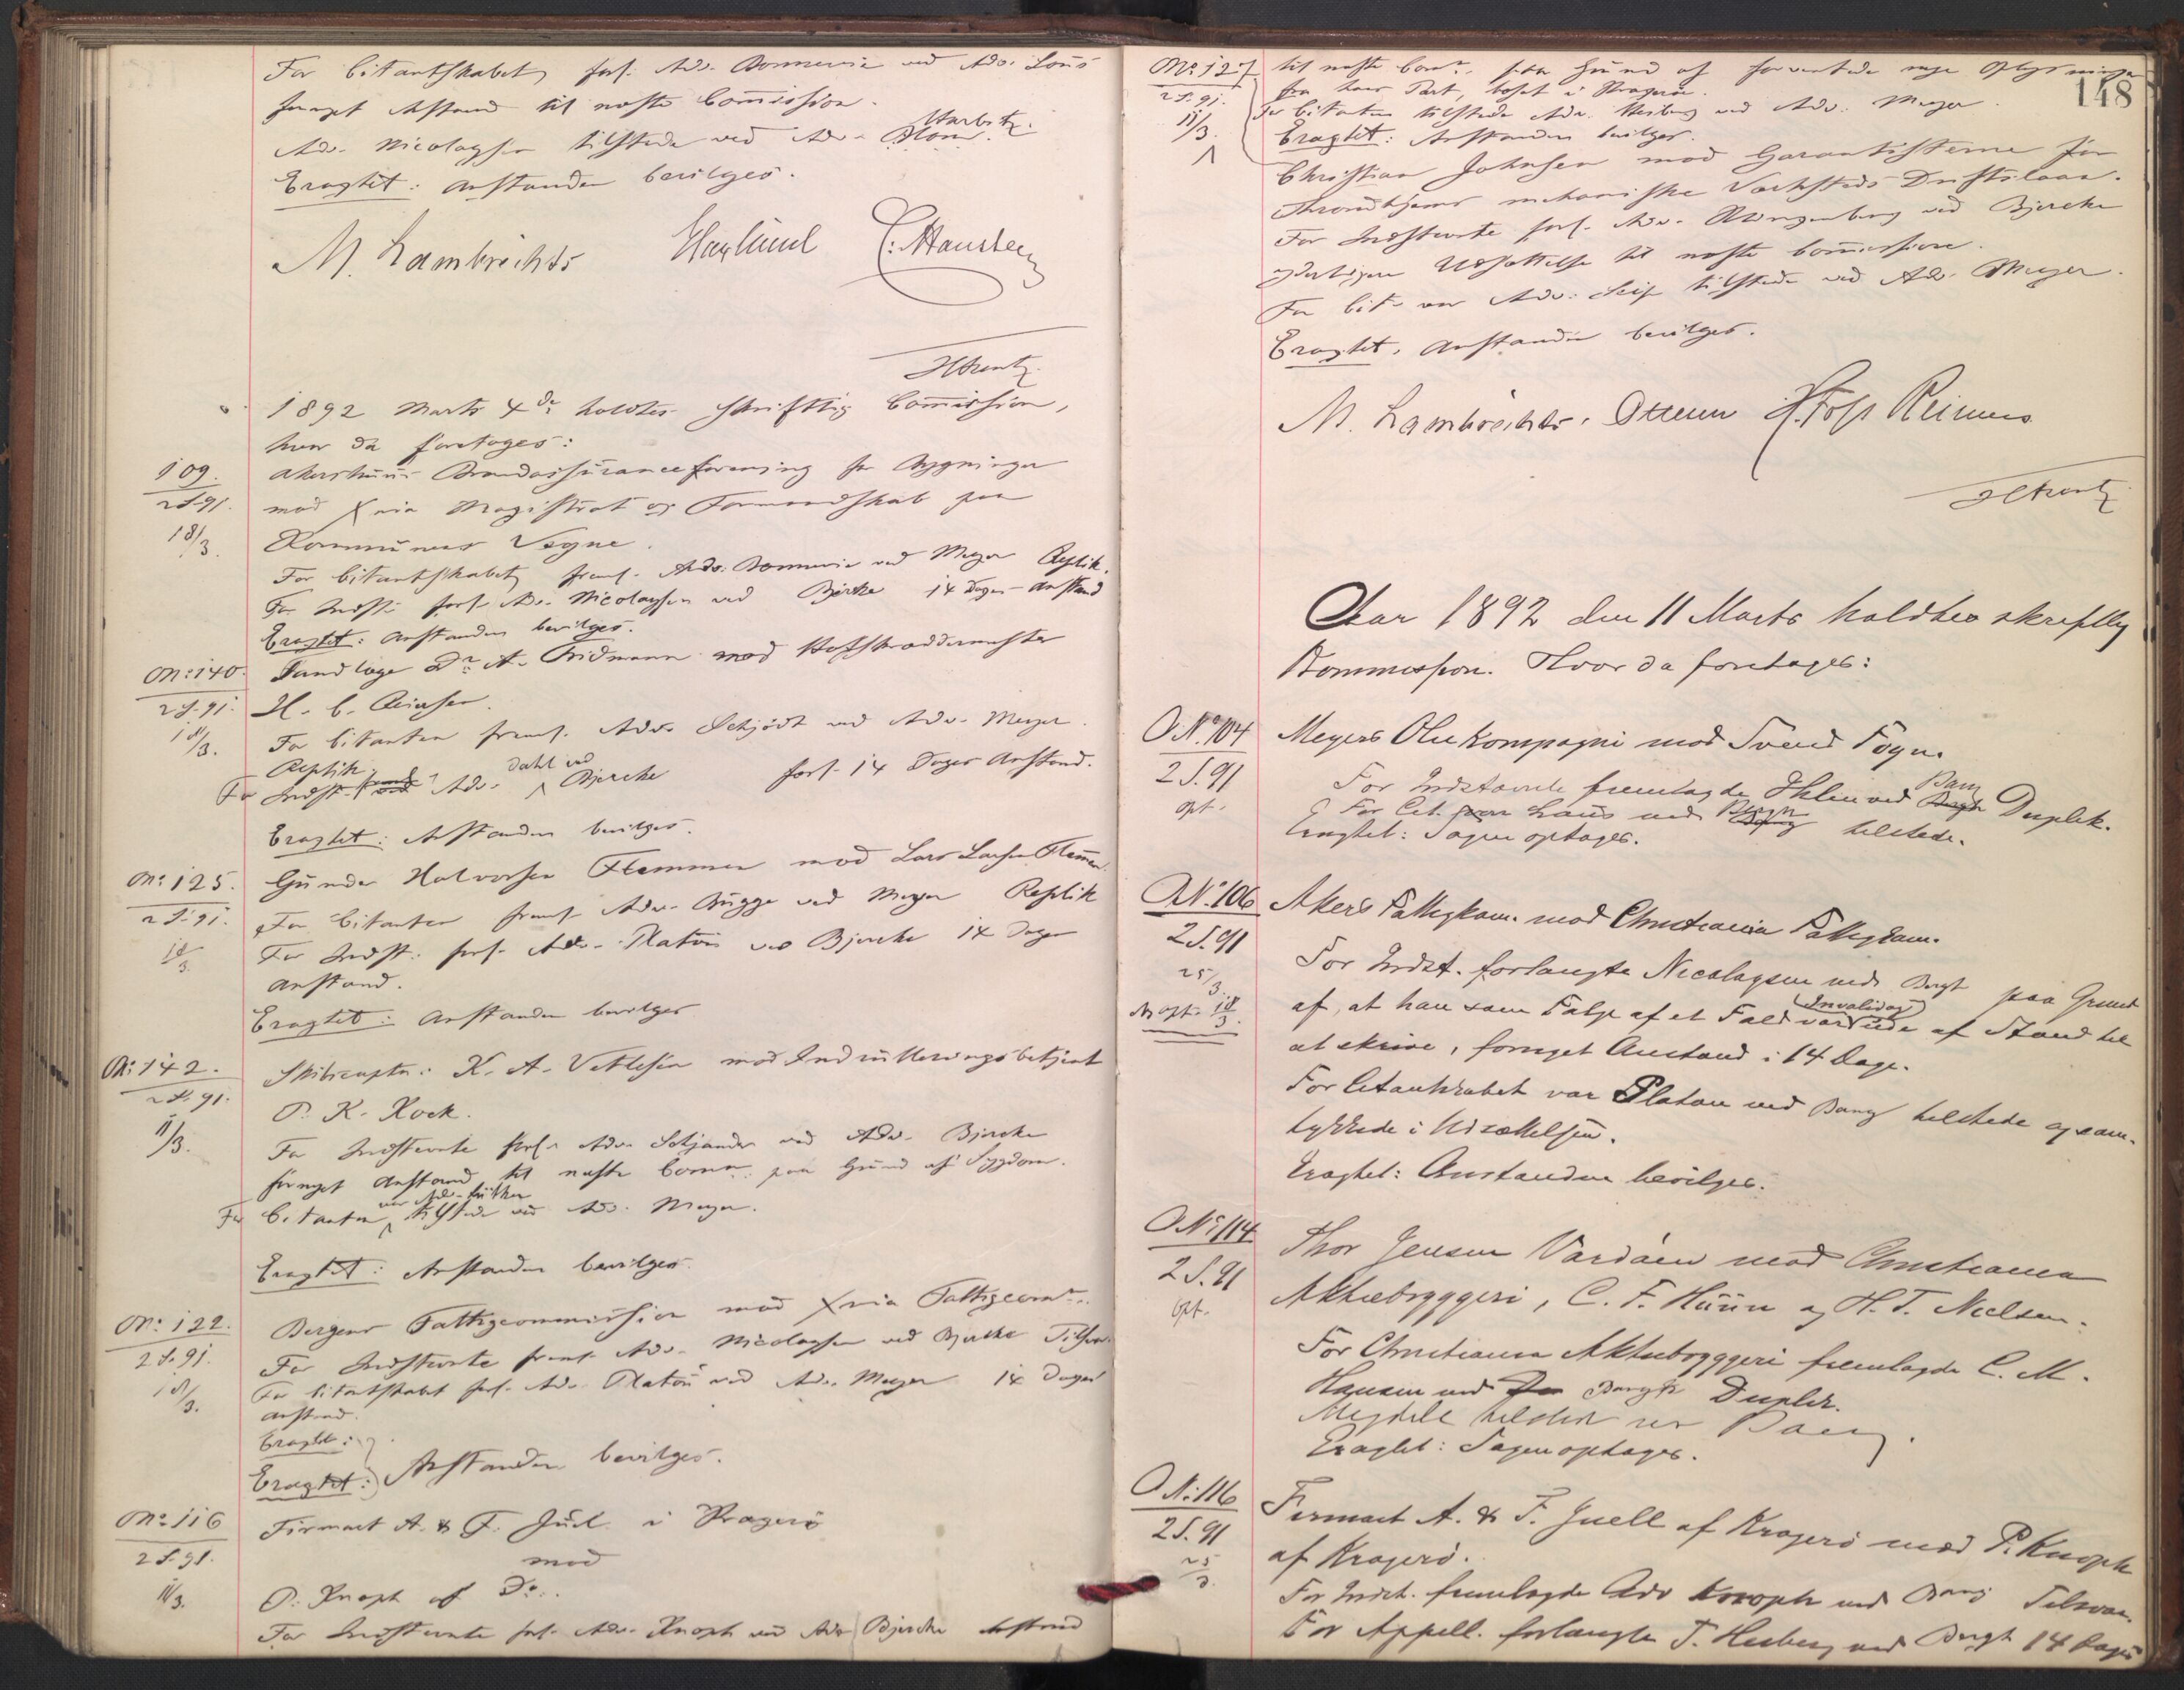 For Citantskabet forl. Adv. Bonnevie ved Adv. Lous
fornyet Anstand til næste Commission.
Adv. Nicolaysen tilstede ved Adv. Harbitz.
Eragtet: Anstanden bevilges.
M. Lambrechts Haslund C. Hansteen
1892 Marts 4de holdtes skriftlig Commission,
hvor da foretoges:
109.
2 S. 91.
18/3.
Akershuus Brandassuranceforening for Bygninger
mod Xnia Magistrat og Formandskab paa
Kommunens Vegne.
For Citantskabet freml. Adv. Bonnevie ved Meyer Replik.
For Indst. forl. Adv. Nicolaysen ved Bjercke 14 Dages Anstand
Eragtet: Anstanden bevilges.
No: 140.
2 S. 91.
18/3.
Tandlæge Dr. A. Widmann mod Hofskræddermester
H. C.
For Citanten freml. Adv. Schjødt ved Adv. Meyer.
Replik.
For Indst. Adv. Dahl ved Bjercke forl. 14 Dages Anstand.
Eragtet: Anstanden bevilges.
No: 125.
2 S. 91.
18/3.
Gunder Halvorsen Flemmen mod Lars Larsen Flemmen
For Citanten freml. Adv. Bugge ved Meyer Replik
For Indst. forl. Adv. Platou ved Bjercke 14 Dages
Anstand.
Eragtet: Anstanden bevilges
No: 142.
2 S. 91.
11/3.
Skibscaptn: K. A. Vetlesen mod Indrulleringsbetjent
P. K. Kock.
For Indstevnte forl. Adv. ved Adv. Bjercke
fornyet Anstand til næste Comm. paa Grund af Sygdom.
For Citanten var Adv. tilstede ved Adv. Meyer.
Eragtet: Anstanden bevilges.
No: 122.
2 S. 91.
18/3.
Bergens Fattigcommission mod Xnia Fattigcomn.
For Indstevnte freml. Adv. Nicolaysen ved Bjercke Tilsvar.
For Citantskabet forl. Adv. Platou ved Adv. Meyer 14 Dages
Anstand.
Eragtet:
Eragtet: Anstanden bevilges.
No: 116
2 S. 91.
11/3.
Firmaet A. & F. Juel i Kragerø
mod
P. Knoph af Do.
For Indstevnte forl. Adv. Knoph ved Adv Bjercke Anstand
148
No: 127
2 S. 91.
11/3.
til næste Comn. paa Grund af forventede nye Oplysninger
fra hans Part, bosat i Kragerø.
For Citanten tilstede Adv. Heiberg ved Adv. Meyer.
Eragtet: Anstanden bevilges.
Christian Johnsen mod Garantisterne for
Throndhjems mekaniske Værksteds Driftslaan.
For Indstevnte forl. Adv. Klingenberg ved Bjercke
yderligere Udsættelse til næste Commission.
For Cit. var Adv. tilstede ved Adv. Meyer.
Eragtet: Anstanden bevilges.
M. Lambrechts. H. Foss Reimers
Aar 1892 den 11 Marts holdtes skriftlig
Kommission. Hvor da foretoges:
O. No. 104
2 S. 91
opt.
Meyers Oliekompagni mod Svend Foyn.
For Indstævnte fremlagde ved Bang Duplik.
For Cit. Lous ved tilstede.
Eragtet: Sagen optages.
O. No. 106
2 S. 91
25/3
Akers Fattigkom. mod Christiania Fattigkom.
For Indst. forlangte Nicolaysen ved Bergh paa Grund
af, at han som Følge af et Fald (Invaliditet) var ude af Stand til
at skrive, fornyet Anstand i 14 Dage.
For Citantskabet var Platou ved Bang tilstede og sam-
tykkede i Udsættelsen.
Eragtet: Anstanden bevilges.
O. No. 114
2 S. 91
Opt.
Thor Jensen Vardaen mod Christiania
Aktiebryggeri, C. F. Huun og H. T. Nielsen.
For Christiania Aktiebryggeri fremlagde C. M.
Hansen ved Bergh Duplik.
Mejdell tilstede ved Bang.
Eragtet: Sagen optages.
O. No: 116
2 S. 91
25/3.
Firmaet A. & F. Juell af Kragerø mod P. Knoph
af Kragerø.
For Indst. fremlagde Adv Knoph ved Bang Tilsvar.
For Appell. forlangte T. Heiberg ved Bergh 14 Dages